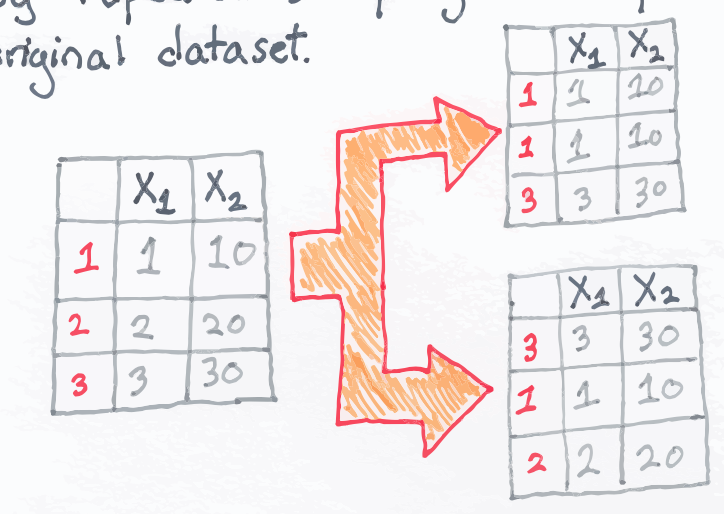 original dataset.
X1 X2
1 1 10
2 2 20
3 3 30
X1 X2
1 1 10
1 1 10
3 3 30
X1 X2
3 3 30
1 1 10
2 2 20